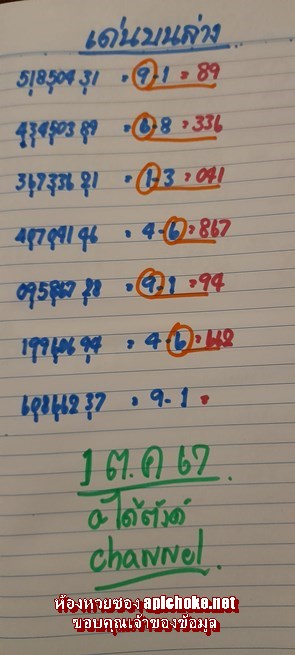 เด่นบนล่าง
518504 31 = 9-1 = 89
434503 89 = 6-8 = 336
367336 21 = 1-3 = 041
407041 46 = 4-6 = 867
095867 28 = 9-1 = 94
199606 94 = 4-6 = 442
698442 37 = 9-1 =
1 ต.ค 67
อ ได้ตังค์
channel
ห้องหวยซอง apichoke.net
ขอบคุณเจ้าของข้อมูล